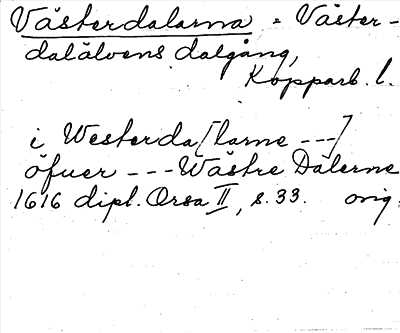 Västerdalarna = Väster-
dalälvens dalgång,
Kopparb. l.
i Westerda[larne ---]
öfuer --- Wästre Dalerne
1616 dipl. Orsa II, s. 33. orig.